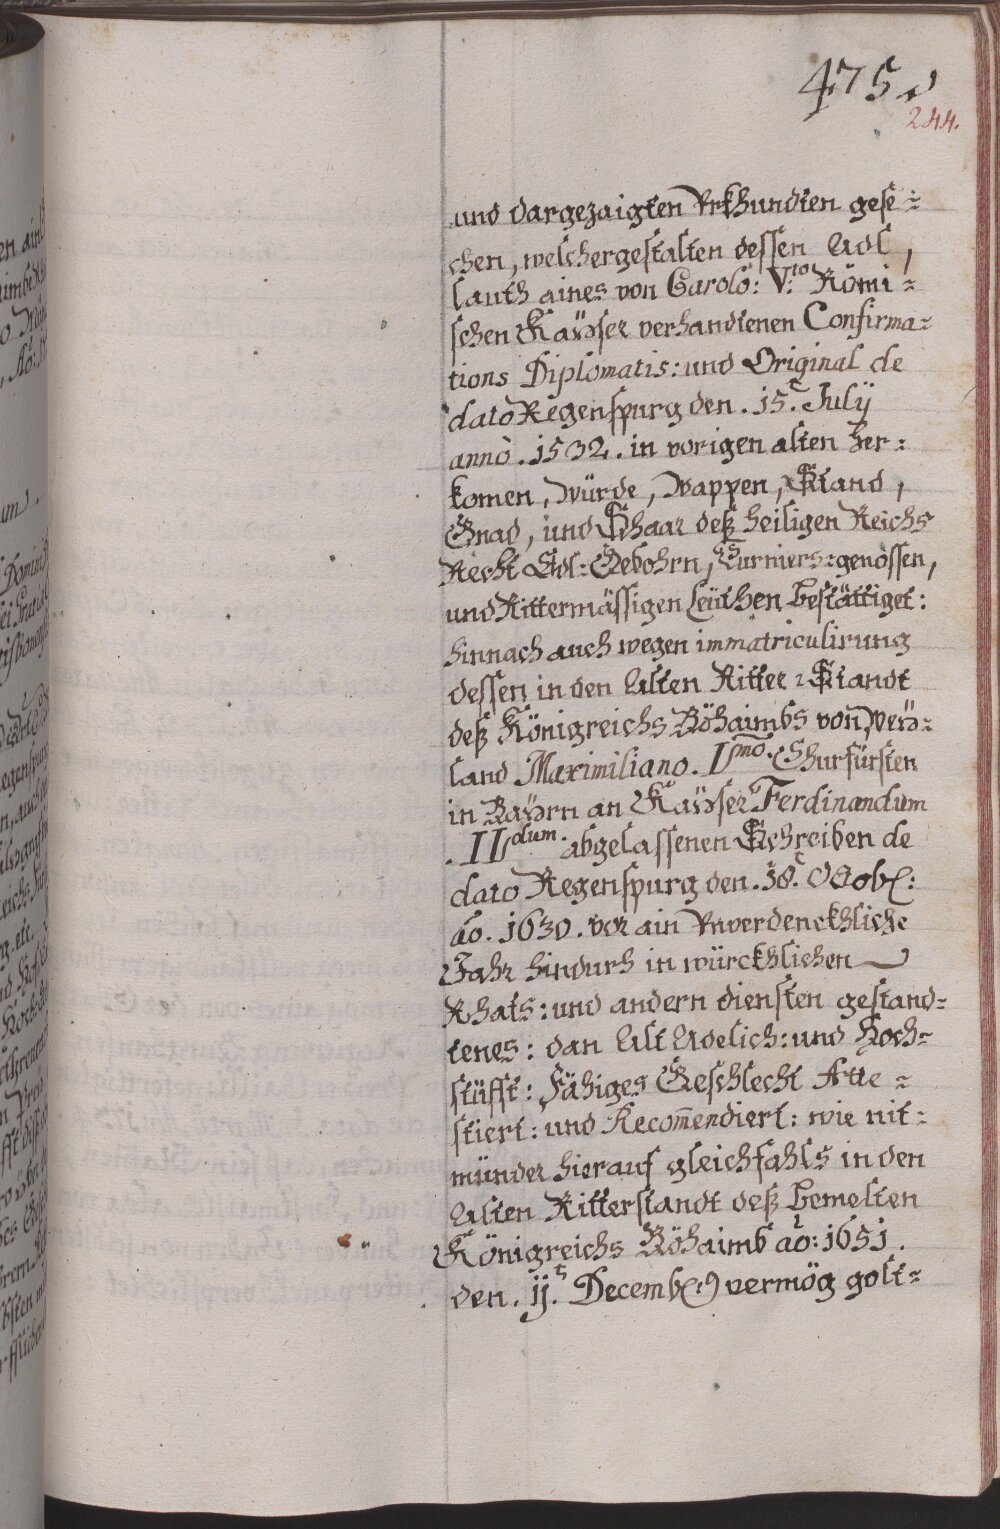 475
244.
und dargezaigten Vrkhundten gese⸗
chen, welchergestalten dessen Adl,
lauth aines von Carolo: V:to Römi⸗
schen Kaÿser verhandtenen Confirma⸗
tions Diplomatis: und Original de
dato Regenspurg den. 15.t Julÿ
anno. 1532. in vorigen alten her⸗
komen, würde, Wappen, Stand,
Gnad, und Schaar deß heiligen Reichs
Recht Edl: Gebohrn, Turniers⸗genossen,
und Rittermässigen Leüthen bestättiget:
hinnach auch wegen immatriculirung
dessen in den Alten Ritter⸗Standt
deß Königreichs Böhaimbs von weÿ⸗
land Maximiliano. I.mo Churfürsten
in Baÿrn an Kaÿser Ferdinandum
. II.dum abgelassenen Schreiben de
dato Regenspurg den. 18.t Octob:
ao. 1630. vor ain Vnverdenckhliche
Jahr hindurh in würckhlichen
Rhats: und andern diensten gestand⸗
tenes: dan Alt Adelich: und Hoch⸗
stüfft: Fähiges Geschlecht Atte⸗
stiert: und Recom̄endiert: wie nit⸗
münder hierauf gleichfahls in den
Alten Ritterstandt deß bemelten
Königreichs Böhaimb ao: 1651.
den. 11.t Decemb: vermög gott⸗